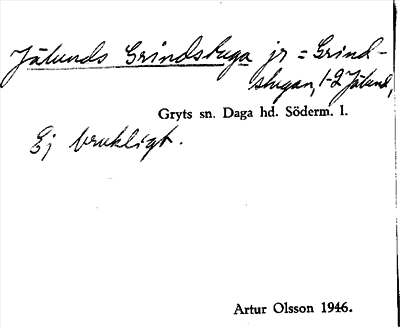 Jälunds Grindstuga jr = Grind-
stugan, 1-2 Jälund,
Gryts sn. Daga hd. Söderm. l.
Ej brukligt.
Artur Olsson 1946.